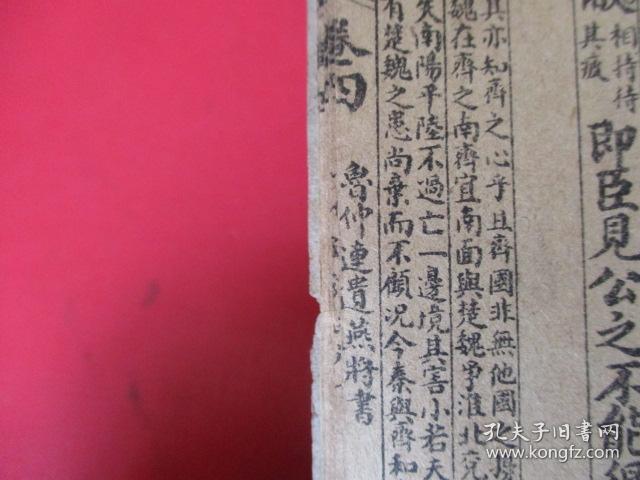 相持待
其疲
即臣見公之不能
其亦知齊之心乎且齊國非無他國之
魏在齊之南齊宜南面與楚魏爭淮北克
失南陽平陸不過亡一邊境其害小若夫
有楚魏之患尚棄而不顧况今秦與齊和
卷四
魯仲連遺燕將書
孔夫子旧书网
www.kongfz.com